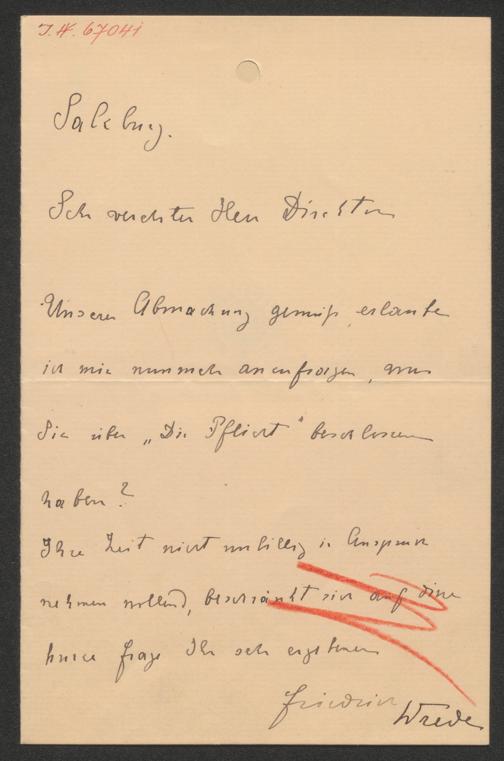 I. N. 67041
Salzburg.
Sehr verehrter Herr Direktor
Unserer Abmachung gemäß, erlaube
ich mir nunmehr anzufragen, was
Sie über „Die Pflicht" beschlossen
haben?
Ihre Zeit nicht unbillig in Anspruch
nehmen wollend, beschränkt sich auf diese
kurze Frage Ihr sehr ergebener
Friedrich Wrede